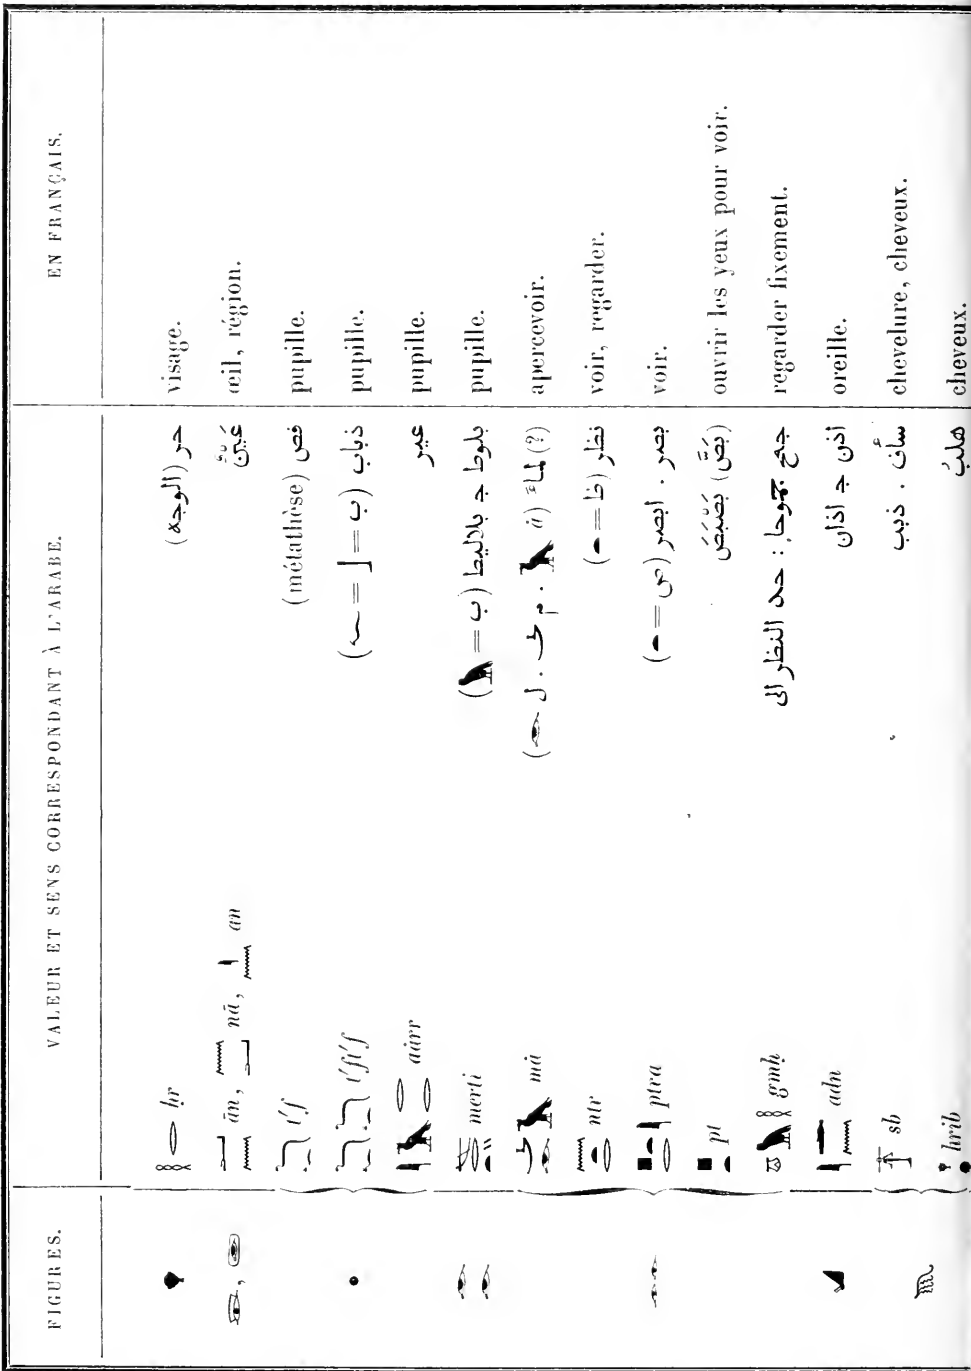 FIGURES. VALEUR ET SENS CORRESPONDANT À L'ARABE. EN FRANÇAIS.
ḥr حر (الوجه) visage.
ān, nā, an عَيْن œil, région.
t́f (métathèse) فص pupille.
t́ft́f ذباب (ب = 𓃀 = 𓆑) pupille.
aârr عير pupille.
merti بلوط ج بلاليط (ب = 𓅓) pupille.
mâ لماءَ (?) apercevoir.
ntr نظر (ظ = 𓏏) voir, regarder.
ptra بصر . ابصر (ص = 𓏏) voir.
pt (بَصَّ) بَصْبَصَ ouvrir les yeux pour voir.
gmḥ جمح جموحا : حد النظر الى regarder fixement.
adn أذن ج اذان oreille.
sb سأف . ذبب chevelure, cheveux.
hrib هلبٌ cheveux.